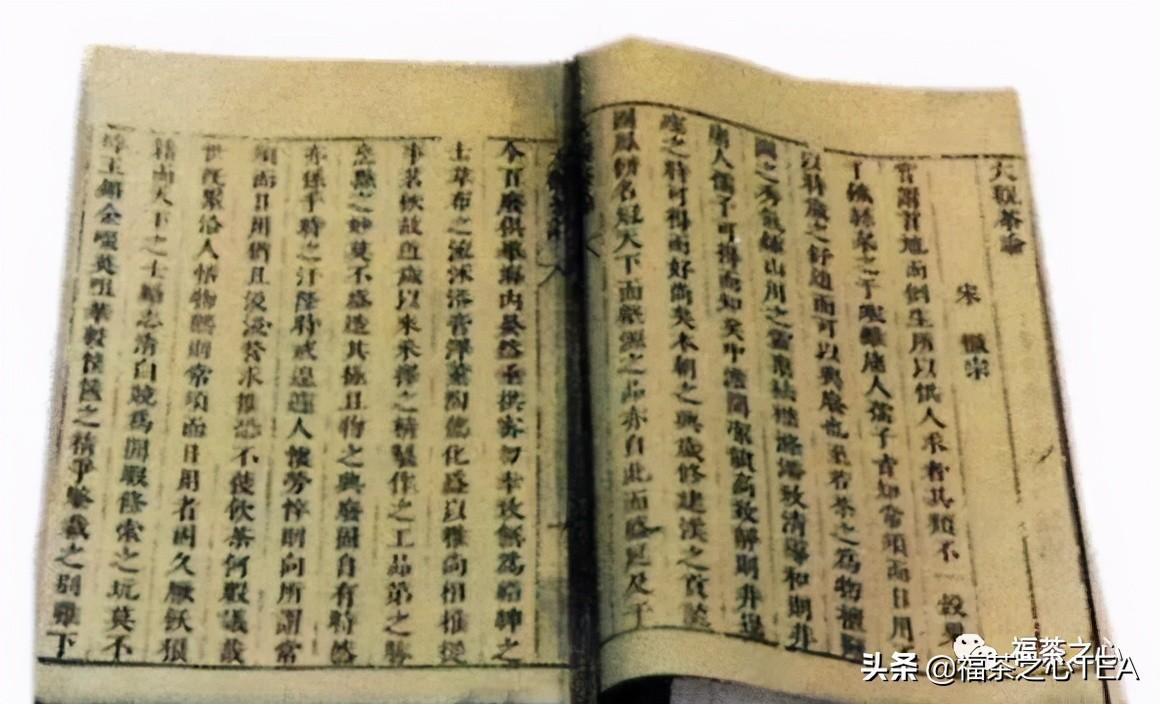 大觀茶論
宋 徽宗
嘗謂首地而倒生所以供人求者其類不一穀粟
之於飢絲枲之于寒雖庸人孺子皆知常須而日用
以時歲之舒迫而可以興廢也至若茶之為物擅甌
閩之秀氣鍾山川之靈稟祛襟滌滯致清導和則非
庸人孺子可得而知矣中澹閒潔韻高致靜則非遑
遽之時可得而好尚矣本朝之興歲修建溪之貢龍
團鳳餅名冠天下而壑源之品亦自此而盛延及于
今百廢俱舉海內晏然垂拱密勿幸致無為縉紳之
士韋布之流沐浴膏澤薰陶德化盛以雅尚相推從
事茗飲故近歲以來采擇之精製作之工品第之勝
烹點之妙莫不盛造其極且物之興廢固自有時然
亦係乎時之汙隆時或遑遽人懷勞悴則向所謂常
須而日用猶且汲汲營求惟恐不獲飲茶何暇議哉
世既累洽人恬物熙則常須而日用者固久厭飫狼
籍而天下之士勵志清白競為閒暇修索之玩莫不
碎玉鏘金啜英咀華較筐篋之精爭鑒裁之別雖下
福茶之心
头条 @福茶之心TEA